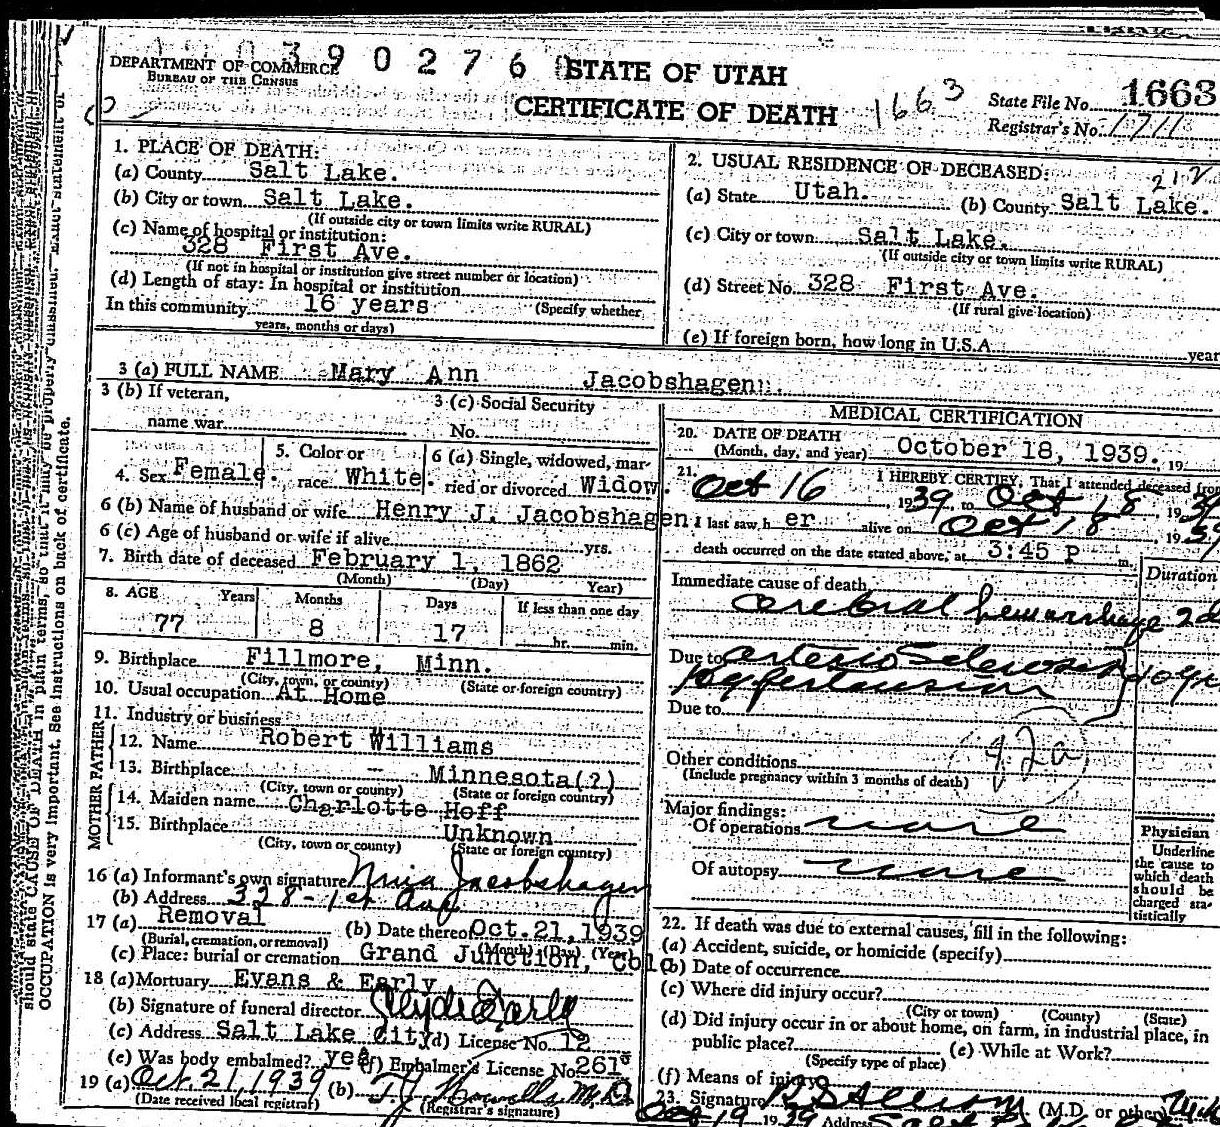 390276
DEPARTMENT OF COMMERCE
BUREAU OF THE CENSUS
STATE OF UTAH
CERTIFICATE OF DEATH
1663
State File No. 1663
Registrar's No. 1711
1. PLACE OF DEATH:
(a) County Salt Lake.
(b) City or town Salt Lake.
(If outside city or town limits write RURAL)
(c) Name of hospital or institution:
328 First Ave.
(If not in hospital or institution give street number or location)
(d) Length of stay: In hospital or institution
In this community 16 years (Specify whether
years, months or days)
2. USUAL RESIDENCE OF DECEASED:
212
(a) State Utah. (b) County Salt Lake.
(c) City or town Salt Lake.
(If outside city or town limits write RURAL)
(d) Street No. 328 First Ave.
(If rural give location)
(e) If foreign born, how long in U.S.A. year
3 (a) FULL NAME Mary Ann Jacobshagen.
3 (b) If veteran,
name war
3 (c) Social Security
No.
4. Sex Female.
5. Color or
race White.
6 (a) Single, widowed, mar-
ried or divorced Widow.
6 (b) Name of husband or wife Henry J. Jacobshagen
6 (c) Age of husband or wife if alive yrs.
7. Birth date of deceased February 1, 1862
(Month) (Day) Year)
8. AGE Years Months Days If less than one day
77 8 17 hr. min.
9. Birthplace Fillmore, Minn.
(City, town, or county) (State or foreign country)
10. Usual occupation At Home
11. Industry or business
FATHER
12. Name Robert Williams
13. Birthplace -- Minnesota(?)
(City, town or county) (State or foreign country)
MOTHER
14. Maiden name Charlotte Hoff
15. Birthplace Unknown
(City, town or county) (State or foreign country)
16 (a) Informant's own signature Nina Jacobshagen
(b) Address 328 - 1st Ave
17 (a) Removal (b) Date thereof Oct. 21, 1939
(Burial, cremation, or removal) (Month) (Day) (Year)
(c) Place: burial or cremation Grand Junction, Colo
18 (a) Mortuary Evans & Early
(b) Signature of funeral director Clyde Early
(c) Address Salt Lake City (d) License No. 12
(e) Was body embalmed? yes (f) Embalmer's License No. 261
19 (a) Oct. 21, 1939 (b) M.D.
(Date received local registrar) (Registrar's signature)
MEDICAL CERTIFICATION
20. DATE OF DEATH
(Month, day, and year) October 18, 1939. 19
21. I HEREBY CERTIFY, That I attended deceased from
Oct 16 1939 to Oct 18 1939
I last saw h er alive on Oct 18 1939
death occurred on the date stated above, at 3:45 P m.
Duration
Immediate cause of death
Cerebral hemorrhage 2d
Due to arterio Sclerosis
Hypertension
Due to
Other conditions
(Include pregnancy within 3 months of death)
Major findings:
Of operations none
Of autopsy none
Physician
Underline
the cause to
which death
should be
charged sta-
tistically
22. If death was due to external causes, fill in the following:
(a) Accident, suicide, or homicide (specify)
(b) Date of occurrence
(c) Where did injury occur?
(City or town) (County) (State)
(d) Did injury occur in or about home, on farm, in industrial place, in
public place? (e) While at Work?
(Specify type of place)
(f) Means of injury
23. Signature (M.D. or other)
Oct 19 1939 Address
should state CAUSE OF DEATH in plain terms, so that it may be properly classified. Exact statement of
OCCUPATION is very important. See instructions on back of certificate.